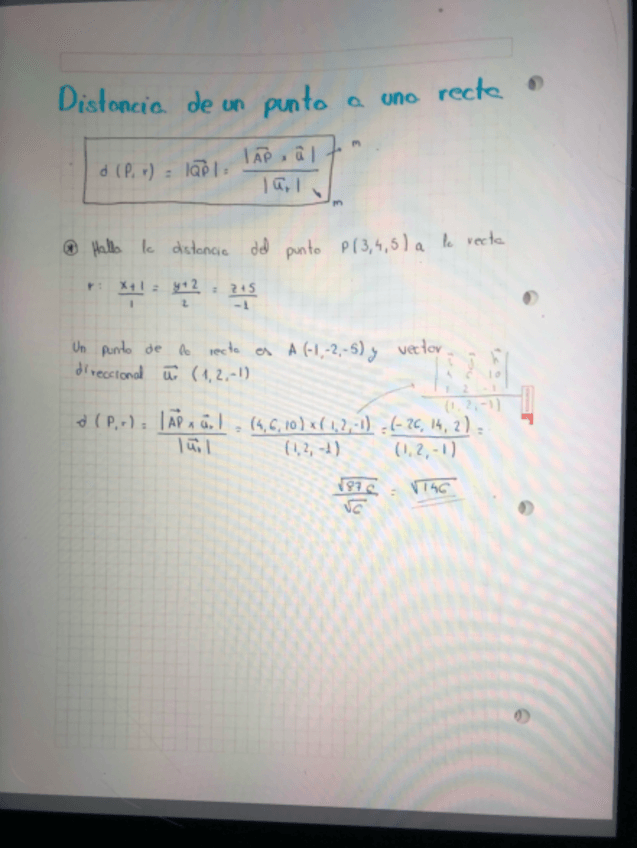 Distancia de un punto a una recta
d (P, r) = |QP| = |AP x u| / |ur|
m
m
* Halla la distancia del punto P(3,4,5) a la recta
r: x+1/1 = y+2/2 = z+5/-1
Un punto de la recta es A(-1,-2,-5) y vector
direccional ur (1,2,-1)
i j k
10
1 2 -1
(1,2,-1)
d (P,r) = |AP ∧ ur| / |ur| = (4,6,10) x (1,2,-1) / (1,2,-1) = (-26, 14, 2) / (1,2,-1) =
√876 / √6 = √146